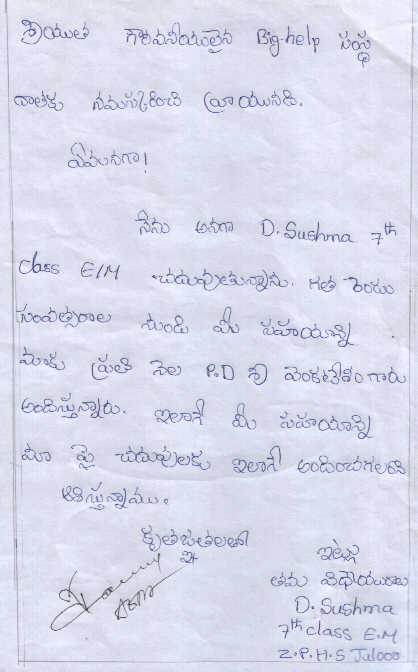 శ్రీయుత గౌరవనీయులైన Big-help సంస్థ
దాతకు నమస్కరించి వ్రాయునది.
ఏమనగా!
నేను అనగా D. Sushma 7th
class E/M చదువుతున్నాను. గత రెండు
సంవత్సరాల నుండి మీ సహాయాన్ని
మాకు ప్రతి నెల P.D శ్రీ వెంకటేశం గారు
అందిస్తున్నారు. ఇలాగే మీ సహాయాన్ని
మా పై చదువులకు ఇలాగే అందించగలరని
ఆశిస్తున్నాము.
కృతజ్ఞతలతో
ఇట్లు
తమ విధేయురాలు
D. Sushma
7th class E.M
Z.P.H.S